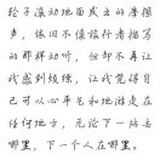 轮子滚动地面发出的摩擦
声，依旧不像旅行者描写
的那样动听，但却不再让
我感到烦躁，让我觉得自
己可以心平气和地游走在
任何地方，无论下一站去
哪里，下一个人在哪里。